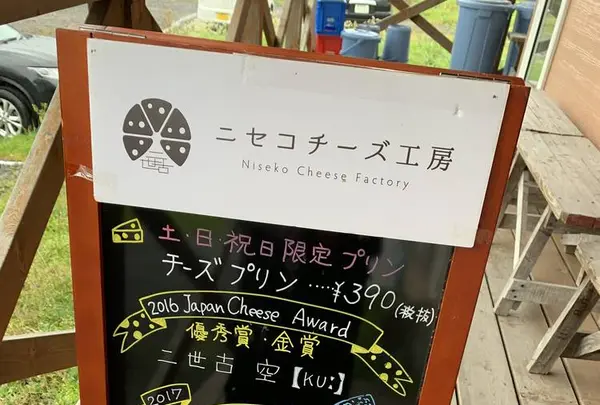 ニセコチーズ工房
Niseko Cheese Factory
土・日・祝日限定プリン
チーズプリン ‥‥‥¥390(税抜)
2016 Japan Cheese Award
優秀賞・金賞
二世古 空【KU:】
2017